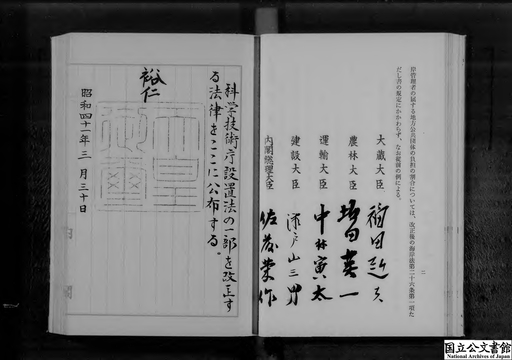 岸管理者の属する地方公共団体の負担の割合については、改正後の海岸法第二十六条第一項た
だし書の規定にかかわらず、なお従前の例による。
二
大蔵大臣 福田赳夫
農林大臣 坂田英一
運輸大臣 中村寅太
建設大臣 瀬戸山三男
内閣総理大臣 佐藤榮作
科学技術庁設置法の一部を改正す
る法律をここに公布する。
裕仁
昭和四十一年三月三十日
国立公文書館
National Archives of Japan